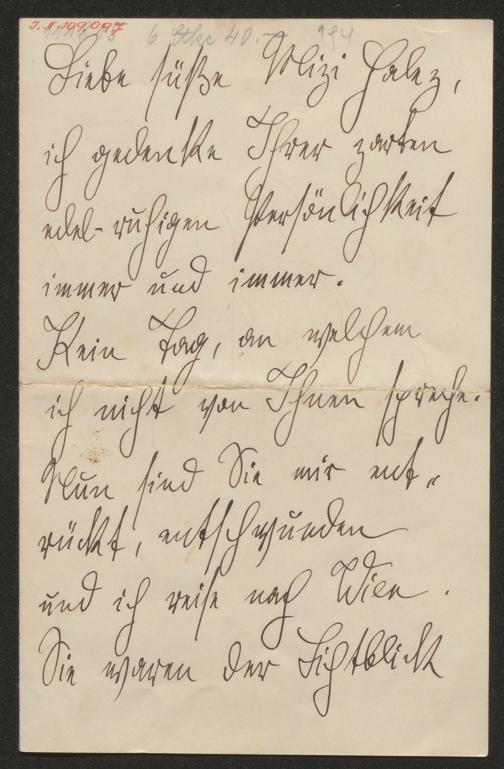 J.N. 109.097
6 Stke 40.- 
Liebe süße Mizi
ich gedenke Ihrer zarten
edel-ruhigen Persönlichkeit
immer und immer.
Kein Tag, an welchem
ich nicht von Ihnen spreche.
Nun sind Sie mir ent„
rückt, entschwunden
und ich reise nach Wien.
Sie waren der Lichtblick